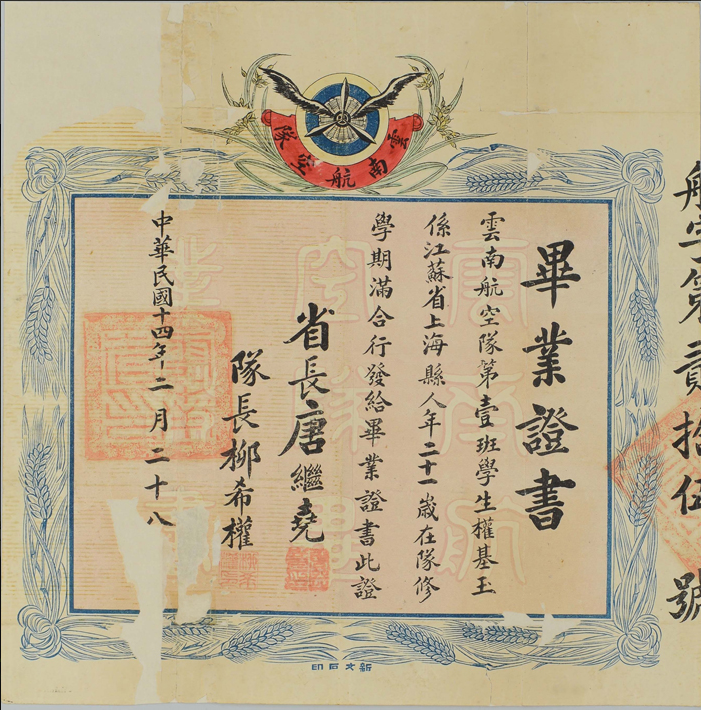 雲南航空隊
航字第貳拾伍號
畢業證書
雲南航空隊第壹班學生權基玉
係江蘇省上海縣人年二十一歲在隊修
學期滿合行發給畢業證書此證
省長唐繼堯
隊長柳希權
中華民國十四年二月二十八
新文石印